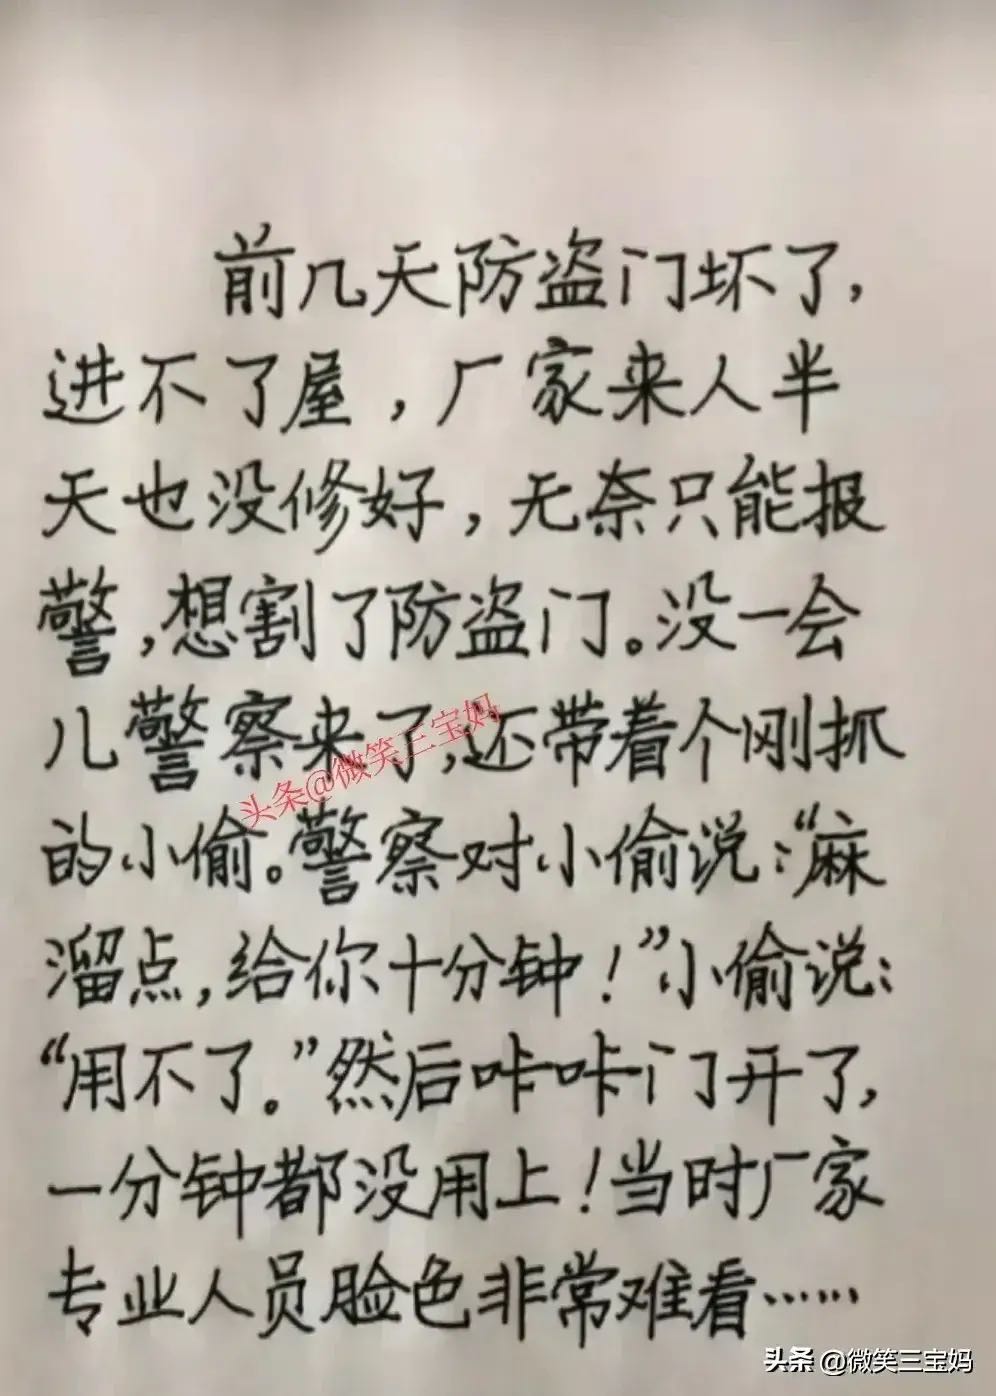 前几天防盗门坏了,
进不了屋,厂家来人半
天也没修好,无奈只能报
警,想割了防盗门。没一会
儿警察来了,还带着个刚抓
头条@微笑三宝妈
的小偷。警察对小偷说:“麻
溜点,给你十分钟!”小偷说:
“用不了。”然后咔咔门开了,
一分钟都没用上!当时厂家
专业人员脸色非常难看……
头条 @微笑三宝妈